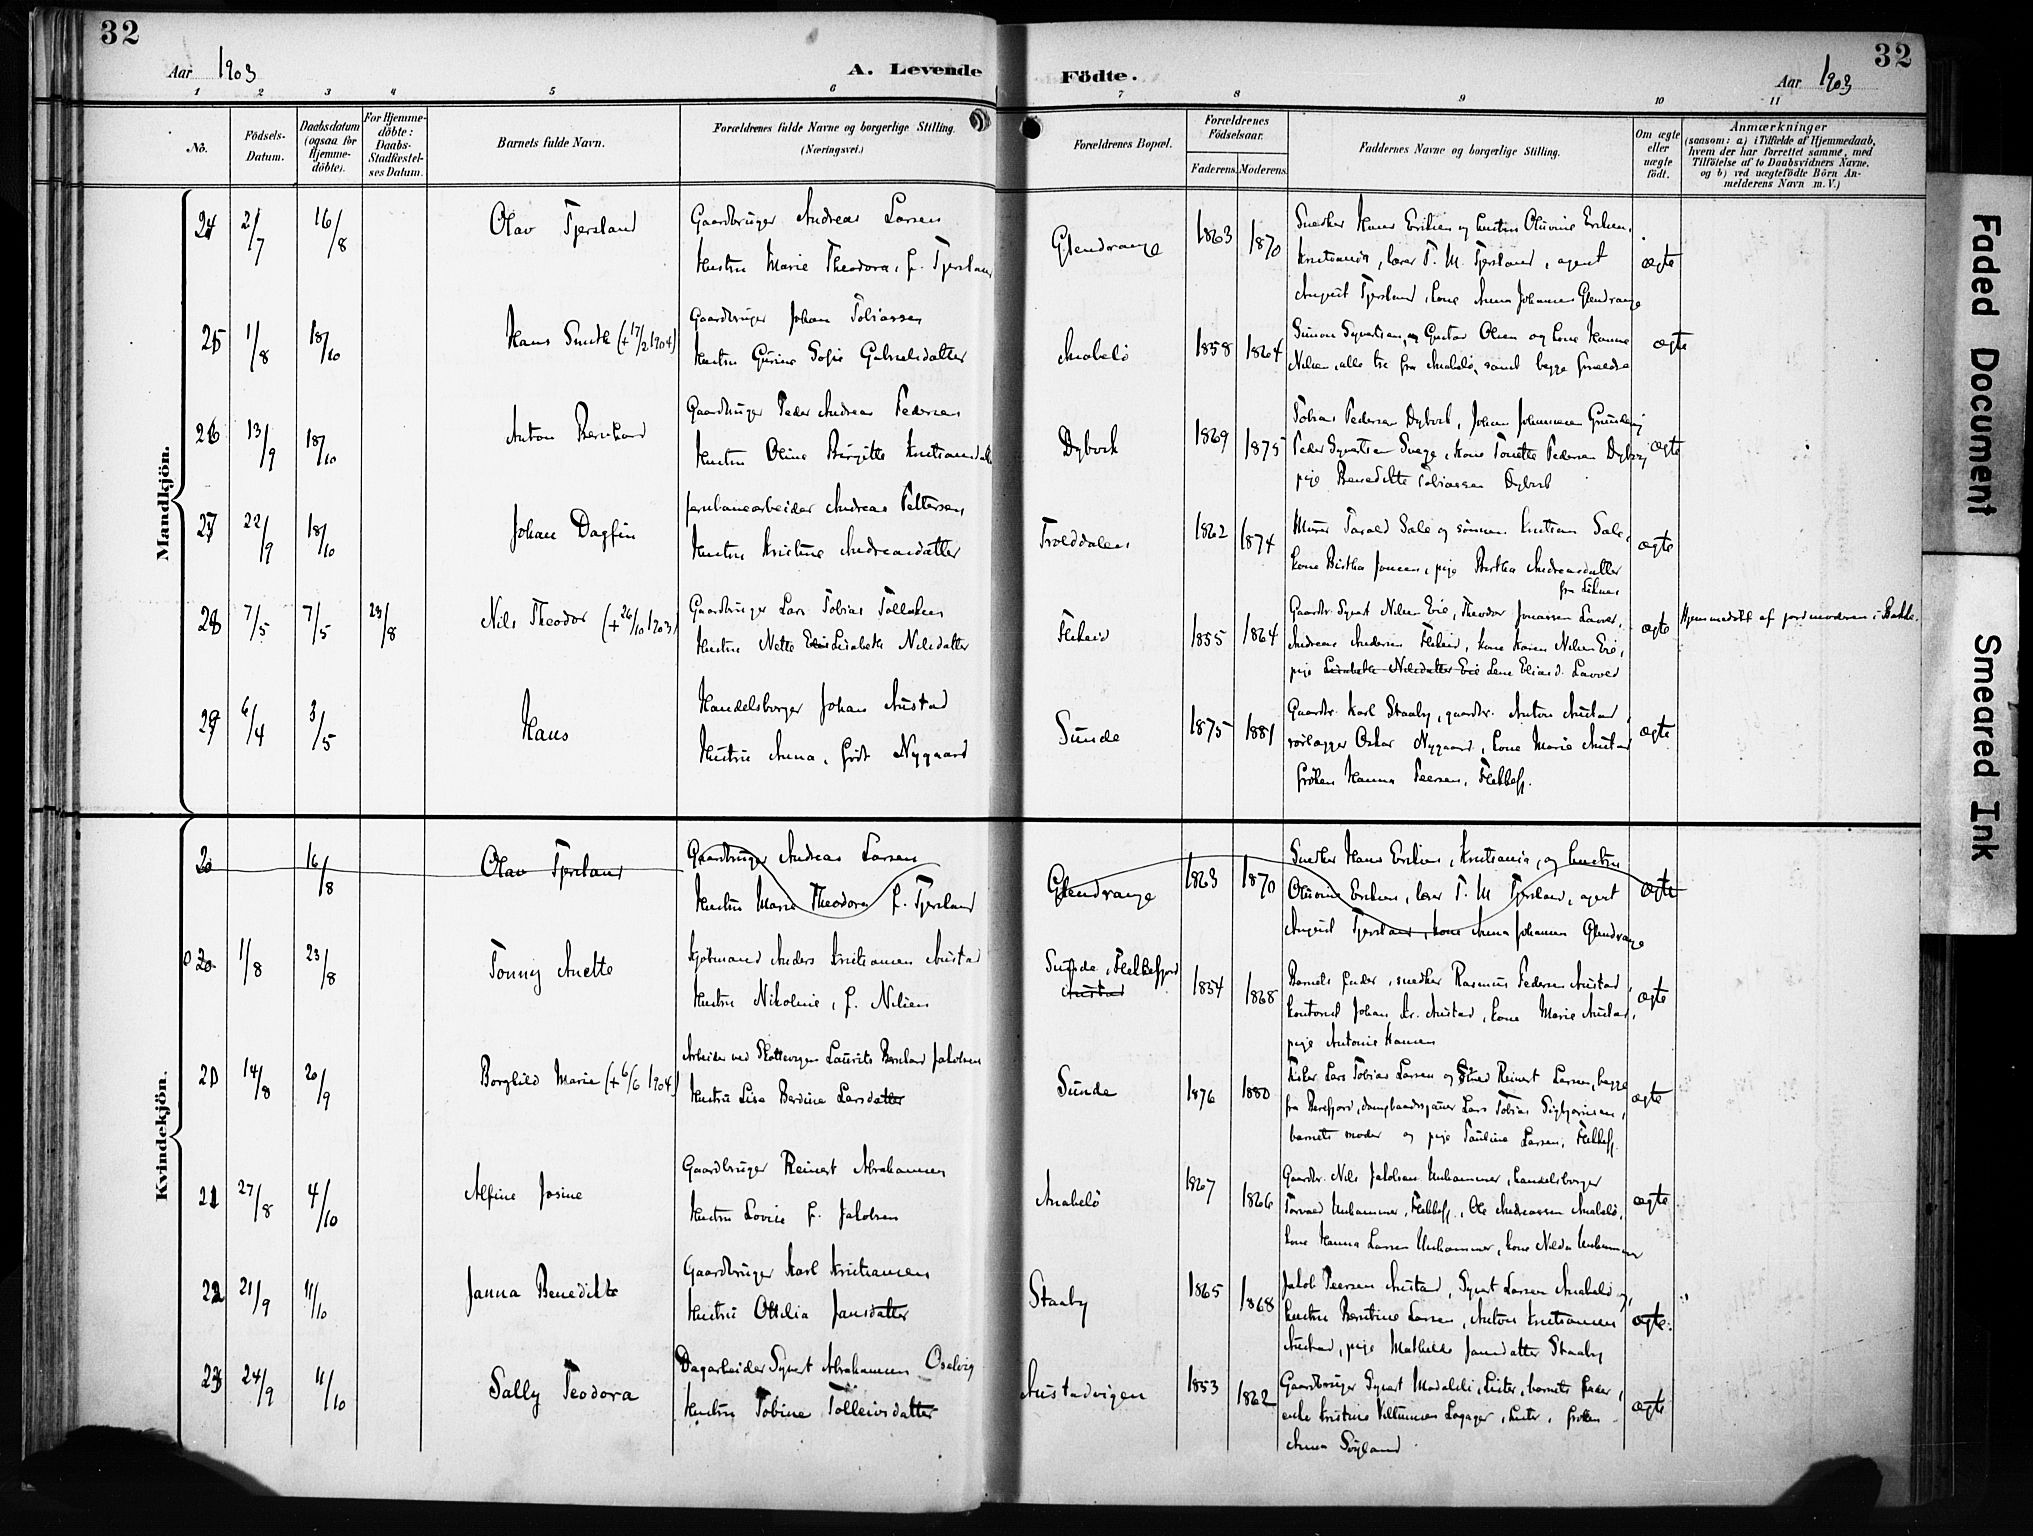 32
32
Aar 1903
A. Levende
Födte.
Aar 1903
1 2 3 4 5 6 7 8 9 10 11
No.
Födsels-Datum.
Daabsdatum (ogsaa for Hjemmedöbte).
For Hjemmedöbte: Daabs-Stadfæstelses Datum.
Barnets fulde Navn.
Forældrenes fulde Navne og borgerlige Stilling. (Næringsvei.)
Forældrenes Bopæl.
Forældrenes Födselsaar.
Faderens. Moderens.
Faddernes Navne og borgerlige Stilling.
Om ægte eller uægte födt.
Anmærkninger
(saasom: a) i Tilfælde af Hjemmedaab,
hvem der har forrettet samme, med
Tilföielse af to Daabsvidners Navne.
og b) ved uægtefödte Börn An-
melderens Navn m. V.)
Mandkjön.
24 2/7 16/8 Olav Tjersland
Gaardbruger Andreas Larsen
Hustru Marie Theodora, f. Tjersland
Glendrange 1863 1870
Snedker Hans Eriksen og hustru Oluvine Eriksen,
Kristiania, lærer T. M. Tjersland, agent
August Tjersland, kone Anna Johannesen Glendrange
ægte
25 1/8 18/10 Hans Smith (+17/2 1904)
Gaardbruger Johan Tobiassen
Hustru Gurine Sofie Gabrielsdatter
Anabelö 1858 1864
Simon Syvertsen, og Gustav Olsen og kone Hanne
Nilsen, alle tre fra Anabelö, samt begge forældre
ægte
26 13/9 18/10 Anton Bernhard
Gaardbruger Peder Andreas Pedersen
Hustru Oline Birgitte
Dybvik 1869 1875
Tobias Pedersen Dybvik, Johan Johannesen
Peder Syvertsen, kone Tonette Pedersen
pige Benedikte Tobiassen Dybvik
ægte
27 22/9 18/10 Johan Dagfin
Jernbanearbeider Andreas Pettersen
Hustru Kristine Andreasdatter
Trolddalen 1862 1874
Murer Tarald Sale og sönnen Kristian Sale,
kone Birtha Jonsen, pige Birtha Andreasdatter
ægte
28 7/5 7/5 23/8 Nils Theodor (+26/10 1903)
Gaardbruger Lars Tobias Tollaksen
Hustru Nette Lisabeth Nilsdatter
Flikeid 1855 1864
Gaardbr. Syvert Nilsen Eie, Theodor Jonassen
Andreas Andersen Flikeid, kone Karen Nilsen Eie,
pige Lisabeth Nilsdatter Eie Lene
ægte
Hjemmedöbt af jordmoderen i Bakke.
29 6/4 3/5 Hans
Handelsborger Johan Austad
Hustru Anna, födt Nygaard
Sunde 1875 1881
Gaardbr. Karl Staaby, gaardbr. Anton Austad,
rörlægger Oskar Nygaard, kone Marie Austad
fröken Hanna Peersen, Flekkefj.
ægte
Kvindekjön.
20 16/8 Olav Tjersland
Gaardbruger Andreas Larsen
Hustru Marie Theodora f. Tjersland
Glendrange 1863 1870
Snedker Hans Eriksen, Kristiania, og hustru
Oluvine Eriksen, lærer T. M Tjersland, agent
August Tjersland, kone Anna Johannesen Glendrange
ægte
20 1/8 23/8 Tonny Anette
Kjöbmand Anders Kristiansen Austad
Hustru Nikoline, f. Nilsen
Sunde, Flekkefjord
Austad
1854 1868
Barnets fader, snedker Rasmus Pedersen Austad,
kontorist Johan Kr. Austad, kone Marie Austad,
pige Antonie Hansen
ægte
20 14/8 20/9 Borghild Marie (+6/6 1904)
Arbeider ved Laurits Bernhard Jakobsen
Hustru Lisa Bardine Larsdatter
Sunde 1876 1880
Fisker Lars Tobias Larsen og Reinert Larsen, begge
fra, Lars Tobias Sigbjörnsen,
barnets moder og pige Pauline Larsen, Flekkefj.
ægte
21 27/8 4/10 Alfine Josine
Gaardbruger Reinert Abrahamsen
Hustru Lovise f. Jakobsen
Anabelö 1867 1866
Gaardbr. Nils Jakobsen Urhammer, handelsborger
Torvald Urhammer, Flekkefj., Ole Andreassen Anabelö,
kone Hanna Larsen Urhammer, kone Nilda Urhammer
ægte
22 21/9 11/10 Janna Benedikte
Gaardbruger Karl Kristiansen
Hustru Ottilia Jansdatter
Staaby 1865 1868
Jakob Peersen Austad, Syvert Larsen Anabelö og
hustru Berntine Larsen, Anton Kristiansen
Austad, pige Mathilde Jansdatter Staaby
ægte
23 24/9 11/10 Sally Teodora
Dagarbeider Syvert Abrahamsen Oselvig
Hustru Tobine Tolleivsdatter
Austadvigen 1853 1862
Gaardbruger Syvert, Lister, barnets fader,
enke Kristine, Lister, fröken
Anna Söyland
ægte
Faded Document
Smeared Ink